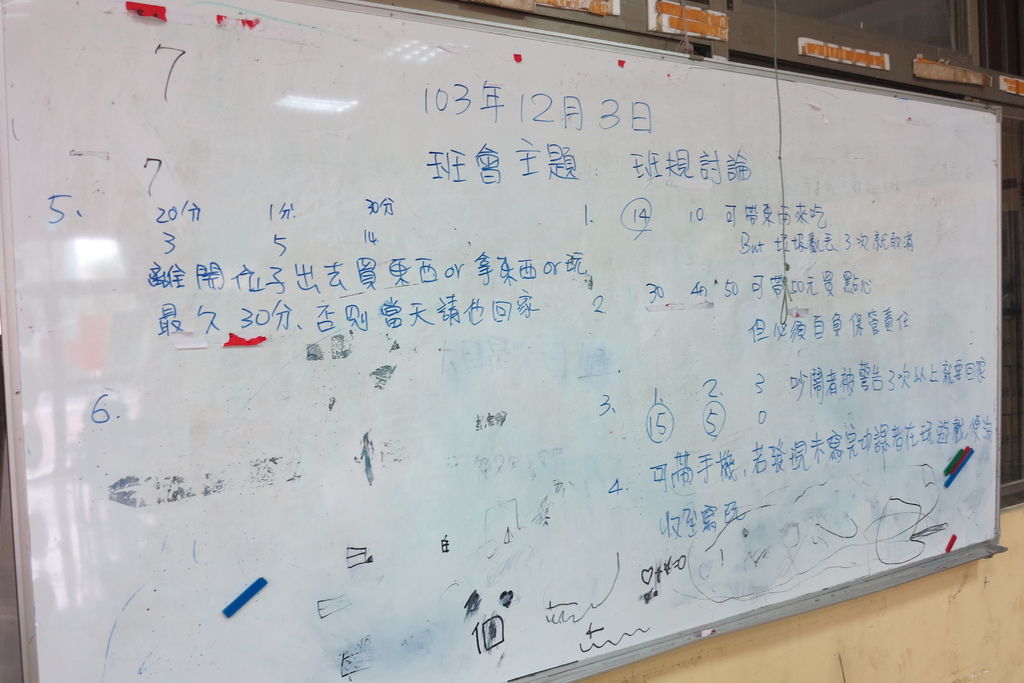 7
103年12月3日
7
班會主題 班規討論
1. 14 10 可帶東西來吃
But 垃圾亂丟3次就取消
2. 30 40 50 可帶50元買點心
但必須自負保管責任
3. 1. 2. 3 吵鬧者被警告3次以上就要回家
15 5 0
4. 可帶手機,若發現未寫完功課者在玩遊戲,便沒
收至寫完
5. 20分 1分 30分
3 5 14
離開位子出去買東西or拿東西or玩,
最久30分、否則當天請他回家
6.